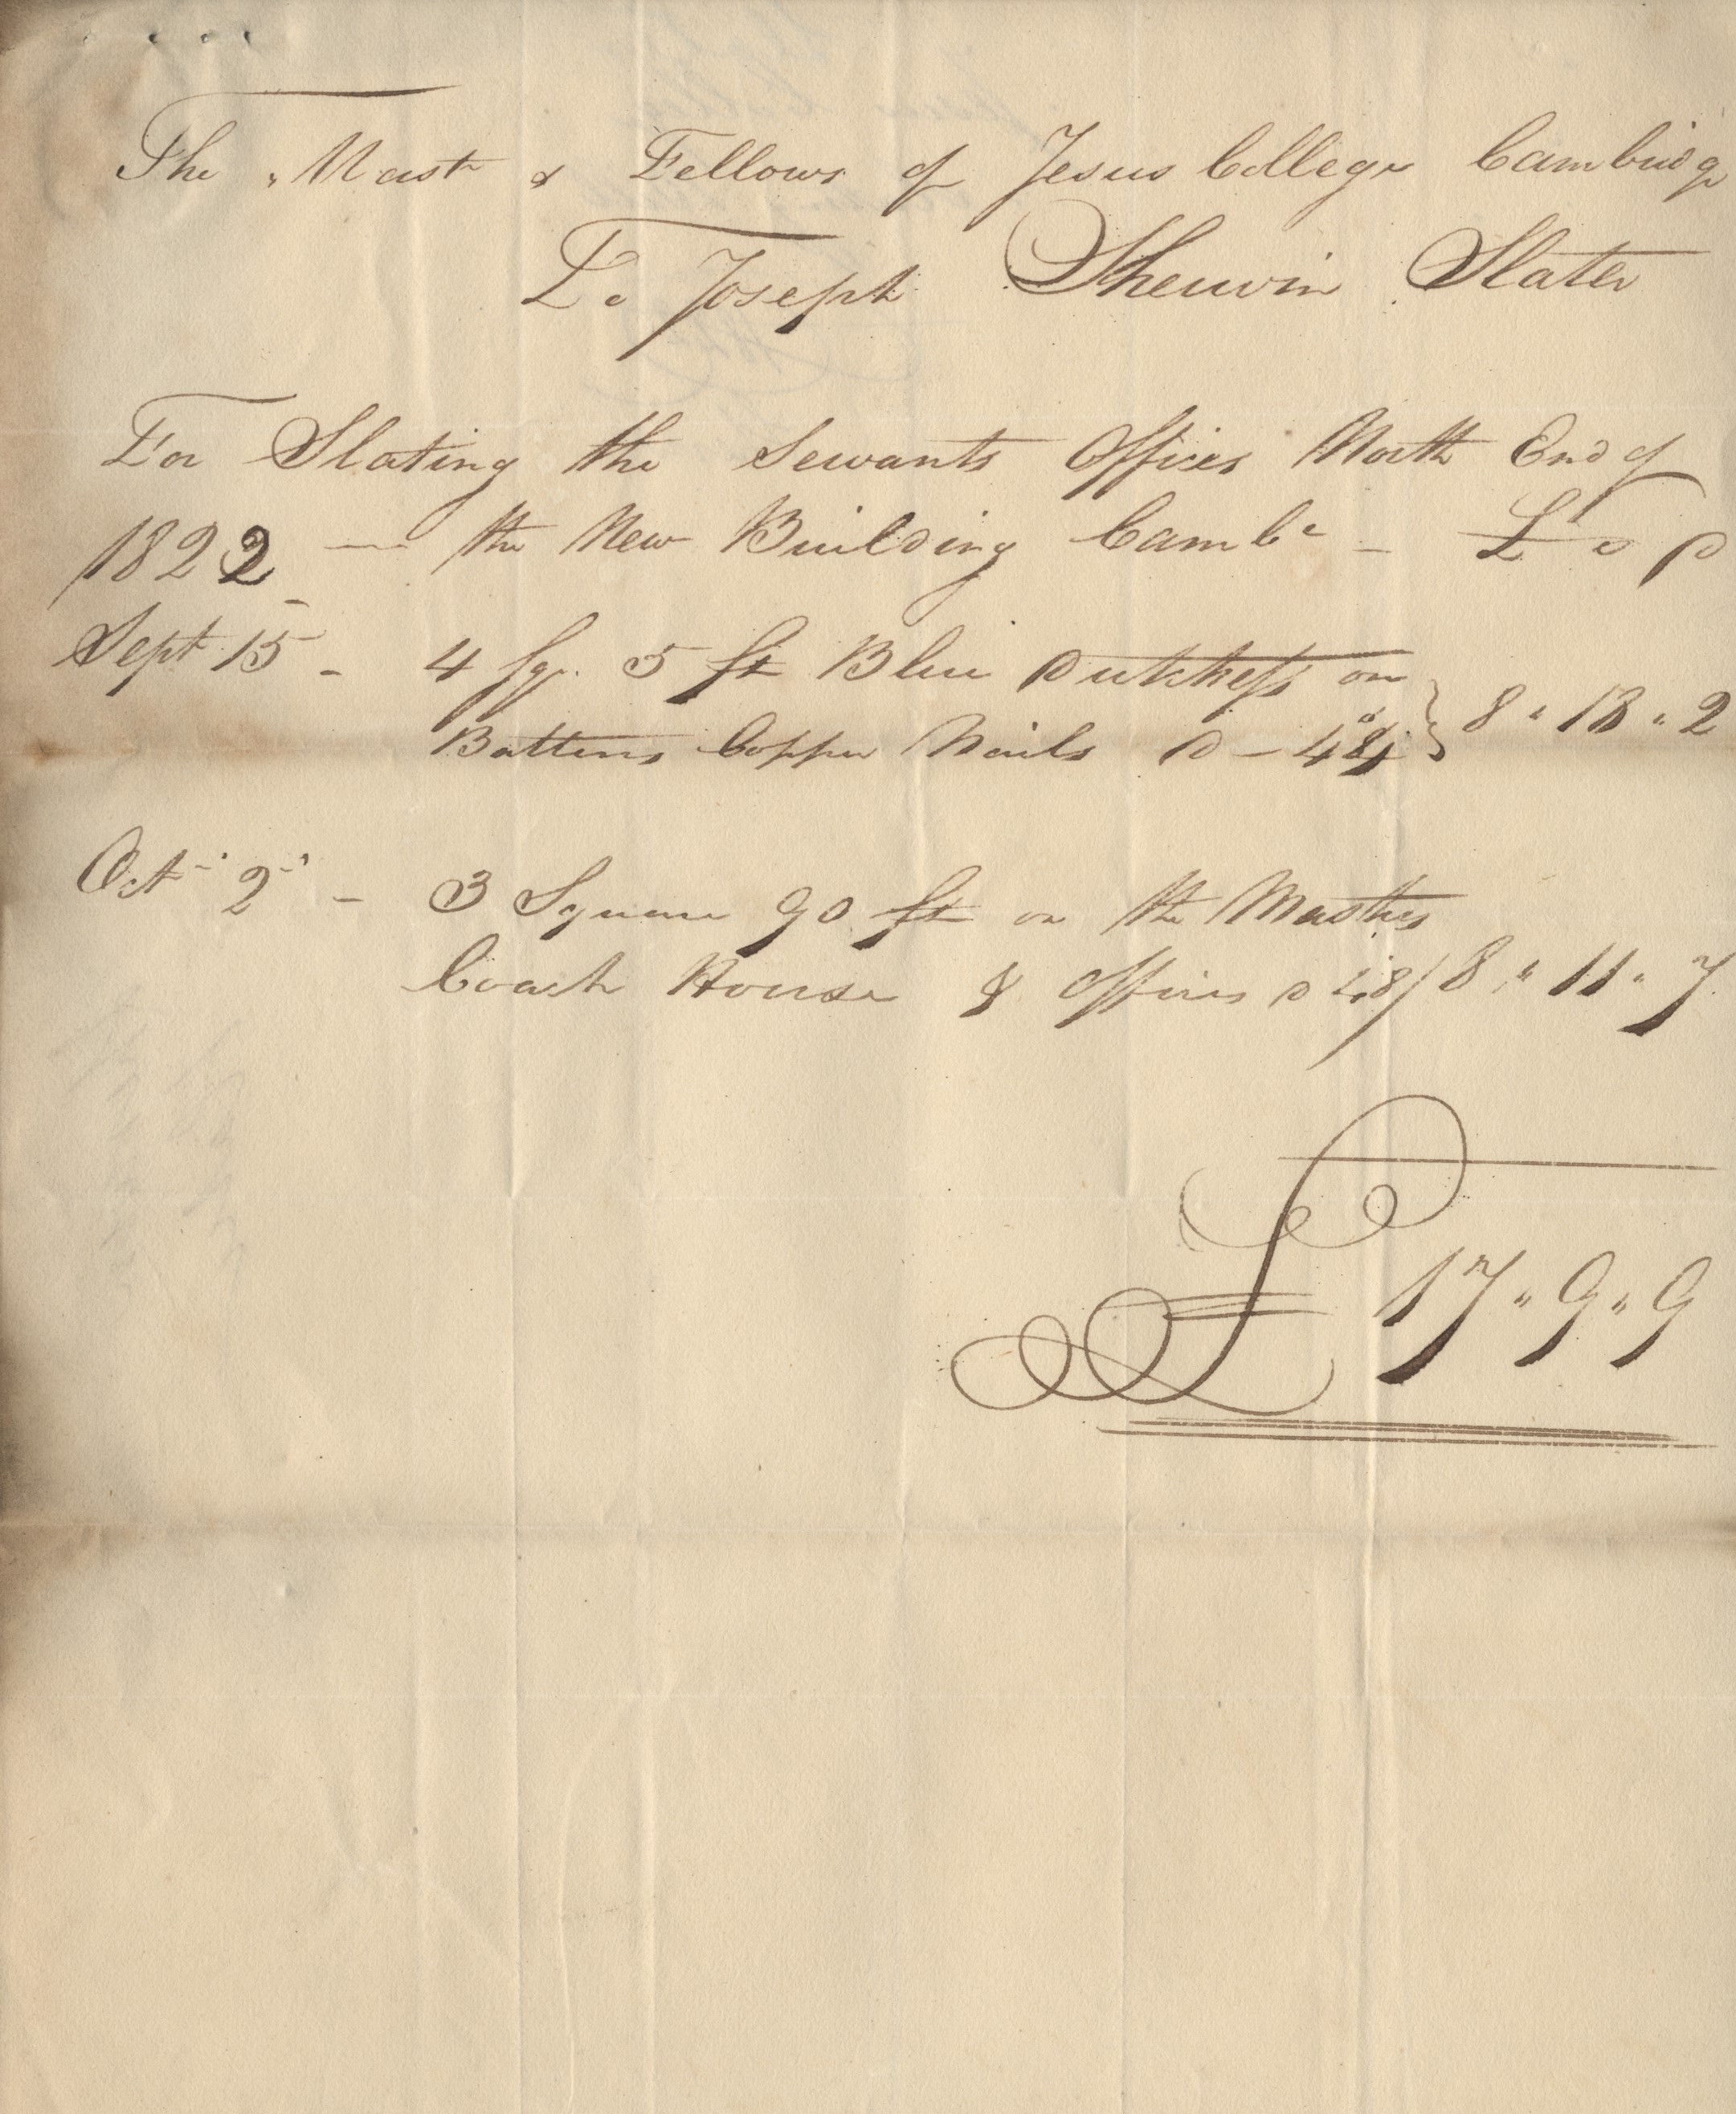 The Mastr & Fellows of Jesus College Cambridge
To Joseph Sherwin Slater
For Slating the Servants Offices North End of
1822 — the New Building Cambe – £ s D
Sept 15 – 4 sqr. 5 ft Blue Dutchess on
Battens Copper Nails D – 44/ } 8 " 18 " 2
Octr 2d – 3 Square 90 ft on the Masters
Coach House & Offices D 44/ 8 " 11 " 7
£ 17 " 9 " 9